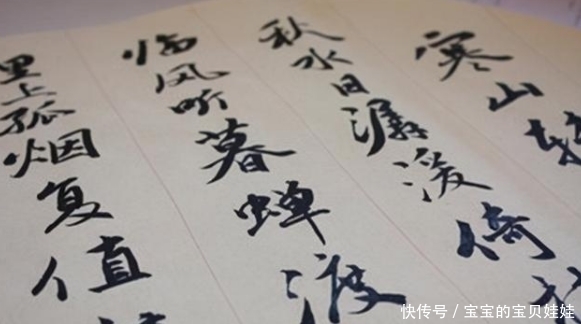 寒山转
秋水日潺湲倚
临风听暮蝉渡
里上孤烟复值
快传号 / 宝宝的宝贝娃娃